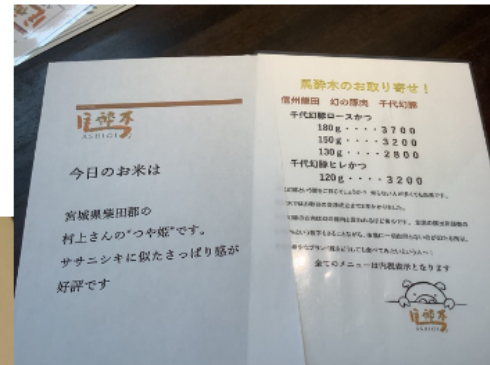 馬酔木
ASHIGI
今日のお米は
宮城県柴田郡の
村上さんの“つや姫”です。
ササニシキに似たさっぱり感が
好評です
馬酔木のお取り寄せ！
信州飯田 幻の豚肉 千代幻豚
千代幻豚ロースかつ
180g・・・・3700
150g・・・・3200
130g・・・・2800
千代幻豚ヒレかつ
120g・・・・3200
全てのメニューは内税表示となります
馬酔木
ASHIGI